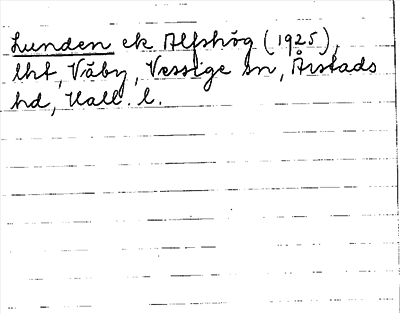 Lunden ek Alfshög (1925),
lht, Väby, Vessige sn, Årstads
hd, Hall. l.